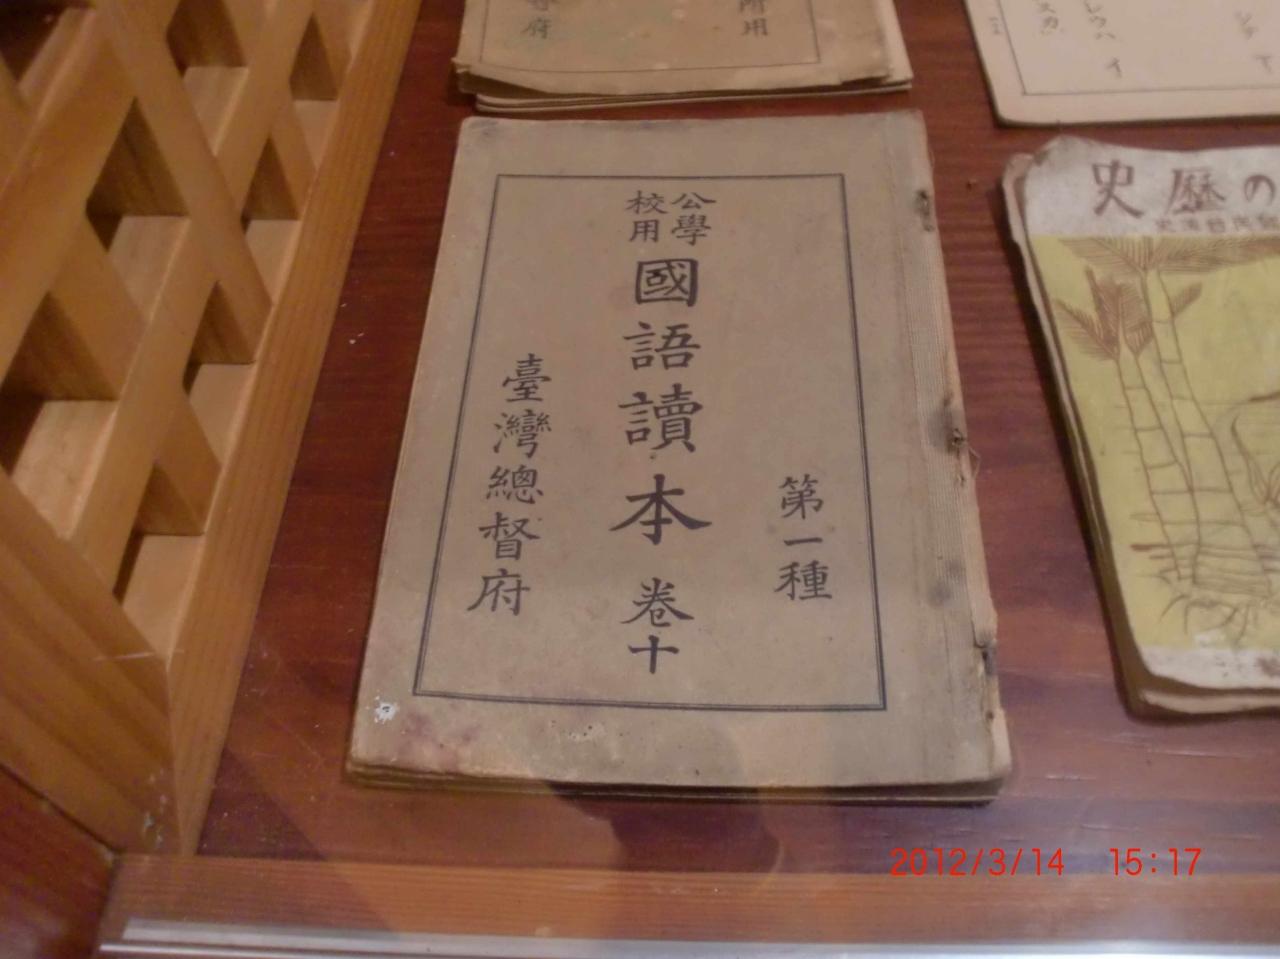 府
附用
公學
校用
國語讀本 卷十
第一種
臺灣總督府
史歷の
2012/3/14 15:17